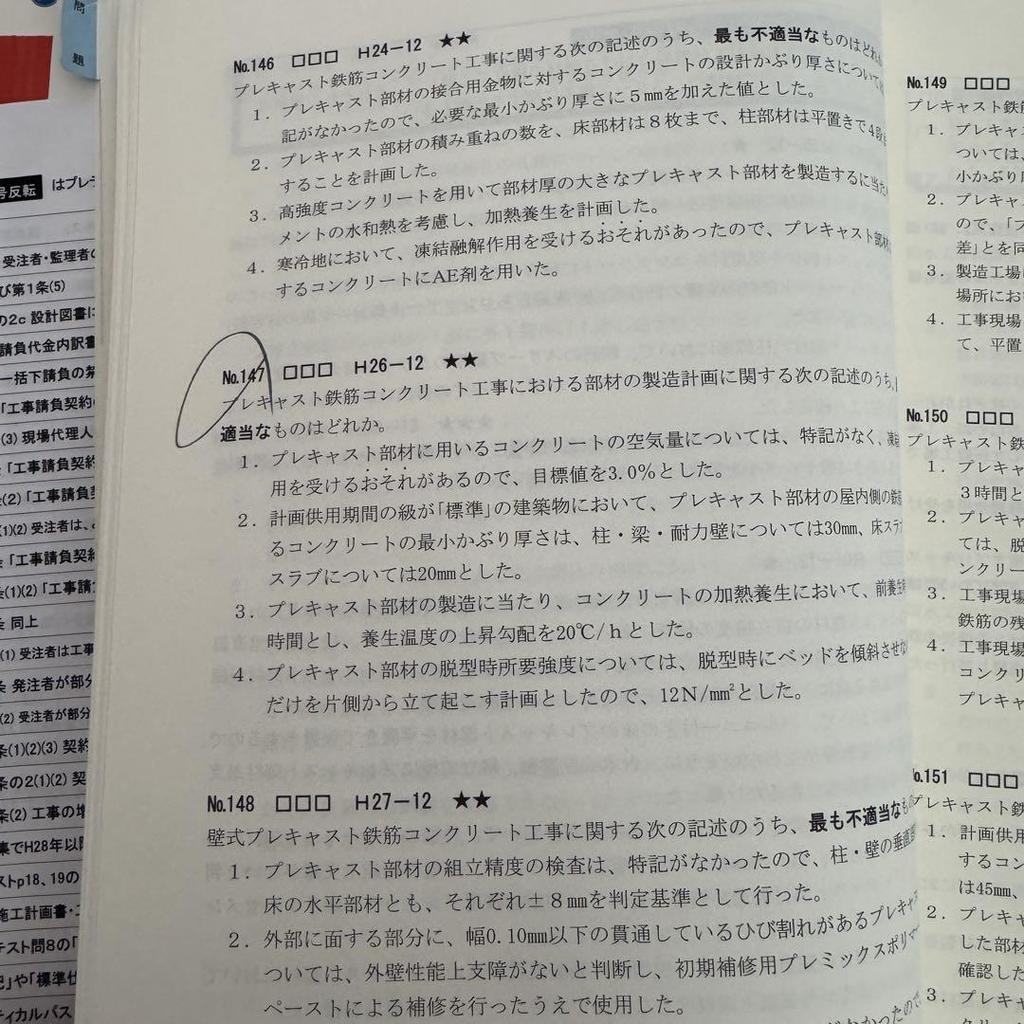 問
題
号反転 はプレ
受注者・監理者の
び第1条(5)
の2c 設計図書に
請負代金内訳書
一括下請負の禁
「工事請負契約の
(3) 現場代理人
「工事請負契約
(2)「工事請負契
(1)(2) 受注者は、
「工事請負契約
(1)(2)「工事請
条 同上
(1) 受注者は工事
条 発注者が部分
(2) 受注者が部分
条(1)(2)(3) 契約
条の2(1)(2) 契
条(2) 工事の増
集でH28年以
ストp18、19の
施工計画書・
テスト問8の「
」や「標準仕
ティカルパス
No.146 □□□ H24-12 ★★
プレキャスト鉄筋コンクリート工事に関する次の記述のうち、最も不適当なものはどれ
1．プレキャスト部材の接合用金物に対するコンクリートの設計かぶり厚さについて
記がなかったので、必要な最小かぶり厚さに5㎜を加えた値とした。
2．プレキャスト部材の積み重ねの数を、床部材は8枚まで、柱部材は平置きで4段
することを計画した。
3．高強度コンクリートを用いて部材厚の大きなプレキャスト部材を製造するに当た
メントの水和熱を考慮し、加熱養生を計画した。
4．寒冷地において、凍結融解作用を受けるおそれがあったので、プレキャスト部材
するコンクリートにAE剤を用いた。
No.147 □□□ H26-12 ★★
プレキャスト鉄筋コンクリート工事における部材の製造計画に関する次の記述のうち、
適当なものはどれか。
1．プレキャスト部材に用いるコンクリートの空気量については、特記がなく、凍
用を受けるおそれがあるので、目標値を3.0％とした。
2．計画供用期間の級が「標準」の建築物において、プレキャスト部材の屋内側の鉄
るコンクリートの最小かぶり厚さは、柱・梁・耐力壁については30㎜、床スラ
スラブについては20㎜とした。
3．プレキャスト部材の製造に当たり、コンクリートの加熱養生において、前養生
時間とし、養生温度の上昇勾配を20℃/hとした。
4．プレキャスト部材の脱型時所要強度については、脱型時にベッドを傾斜させ
だけを片側から立て起こす計画としたので、12N/㎜²とした。
No.148 □□□ H27-12 ★★
壁式プレキャスト鉄筋コンクリート工事に関する次の記述のうち、最も不適当な
1．プレキャスト部材の組立精度の検査は、特記がなかったので、柱・壁の垂直
床の水平部材とも、それぞれ±8㎜を判定基準として行った。
2．外部に面する部分に、幅0.10㎜以下の貫通しているひび割れがあるプレキャ
ついては、外壁性能上支障がないと判断し、初期補修用プレミックスポリマ
ペーストによる補修を行ったうえで使用した。
No.149 □□□
プレキャスト鉄
1．プレキャ
ついては、
小かぶり
2．プレキャ
ので、「プ
差」とを同
3．製造工場
場所にお
4．工事現場
て、平置
No.150 □□□
プレキャスト鉄
1．プレキャ
3時間と
2．プレキャ
ては、脱
ンクリー
3．工事現場
鉄筋の残
4．工事現場
コンクリ
プレキャ
No.151 □□□
プレキャスト鉄
1．計画供用
するコン
は45㎜、
2．プレキャ
した部材
確認した
3．プレキ